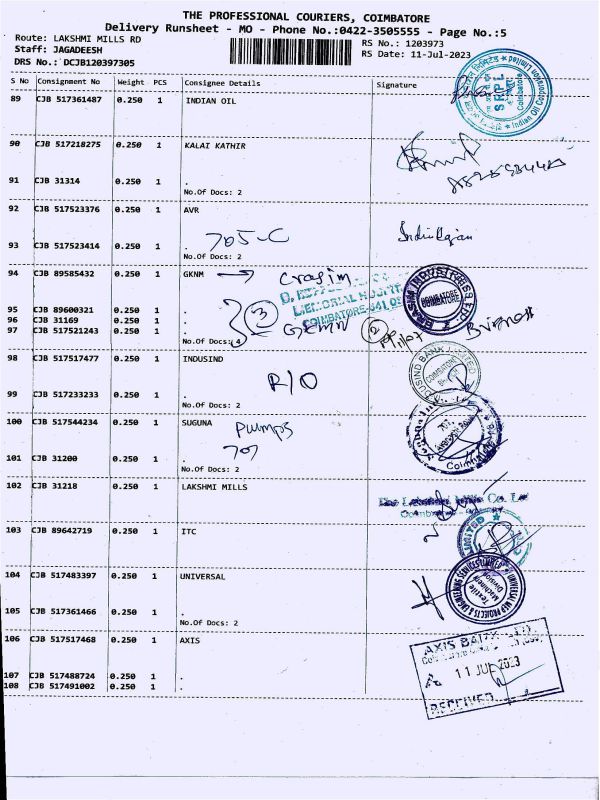 THE PROFESSIONAL COURIERS, COIMBATORE
Delivery Runsheet - MO - Phone No.:0422-3505555 - Page No.:5
Route: LAKSHMI MILLS RD
RS No.: 1203973
Staff: JAGADEESH
RS Date: 11-Jul-2023
DRS No.: DCJB120397305
S No Consignment No Weight PCS Consignee Details Signature
89 CJB 517361487 0.250 1 INDIAN OIL
SRPL
Coimbatore
Indian Oil Corporation Limited
90 CJB 517218275 0.250 1 KALAI KATHIR
91 CJB 31314 0.250 1 .
No.Of Docs: 2
92 CJB 517523376 0.250 1 AVR
705-C
93 CJB 517523414 0.250 1 .
No.Of Docs: 2
94 CJB 89585432 0.250 1 GKNM → Crasim
MEMORIAL HOSPITAL
COIMBATORE-641 0
COIMBATORE
95 CJB 89600321 0.250 1 .
96 CJB 31169 0.250 1 .
97 CJB 517521243 0.250 1 .
3
2
No.Of Docs: 4
98 CJB 517517477 0.250 1 INDUSIND
INDUSIND BANK LIMITED
COIMBATORE
R/O
99 CJB 517233233 0.250 1 .
No.Of Docs: 2
100 CJB 517544234 0.250 1 SUGUNA Pumps
707
Coimbatore
101 CJB 31200 0.250 1 .
No.Of Docs: 2
102 CJB 31218 0.250 1 LAKSHMI MILLS
The Lakshmi Mills Co. Ltd
Coimbatore
103 CJB 89642719 0.250 1 ITC
LIMITED
104 CJB 517483397 0.250 1 UNIVERSAL
UNIVERSAL MEP PROJECTS & ENGINEERING SERVICES LIMITED
Textile
Machinery
Division
105 CJB 517361466 0.250 1 .
No.Of Docs: 2
106 CJB 517517468 0.250 1 AXIS
AXIS BANK LTD.
11 JUL 2023
RECEIVED
107 CJB 517488724 0.250 1 .
108 CJB 517491002 0.250 1 .